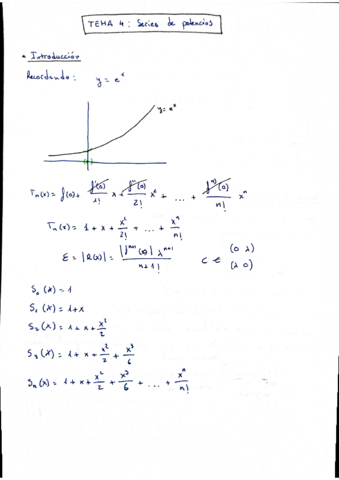 TEMA 4 : Series de potencias
• Introducción
Recordando : y = e^x
y = e^x
T_n(x) = f(0) + f'(0)/1! x + f''(0)/2! x² + ... + f^n)(0)/n! x^n
T_n(x) = 1 + x + x²/2! + ... + x^n/n!
E = |R(x)| = |f^{n+1}(c)| λ^{n+1} / n+1! C ∈ (0 λ)
(λ 0)
S_0(x) = 1
S_1(x) = 1+x
S_2(x) = 1 + x + x²/2
S_3(x) = 1 + x + x²/2 + x³/6
S_n(x) = 1 + x + x²/2 + x³/6 + ... + x^n/n!